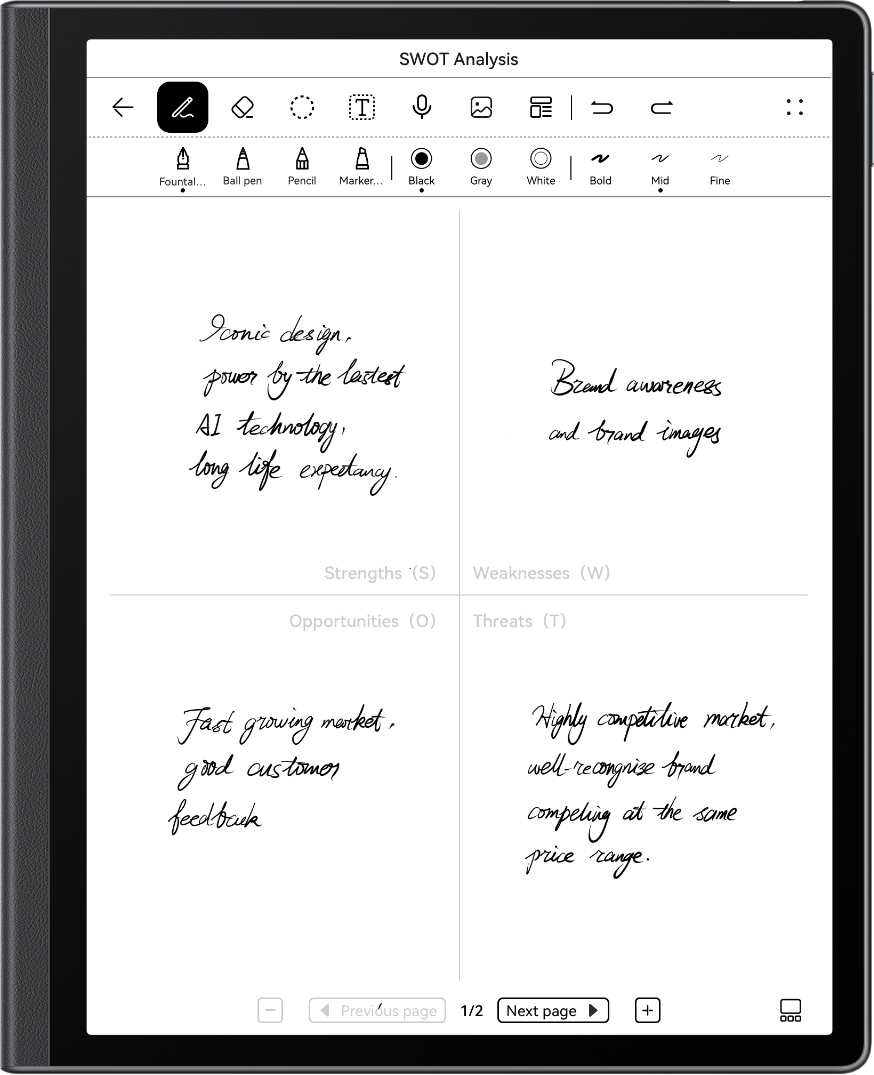 SWOT Analysis
T
Fountai... Ball pen Pencil Marker... Black Gray White Bold Mid Fine
Iconic design,
power by the lastest
AI technology,
long life expectancy.
Brand awareness
and brand images
Strengths (S)
Weaknesses (W)
Opportunities (O)
Threats (T)
Fast growing market,
good customer
feedback
Highly competitive market,
well-recongnise brand
competing at the same
price range.
Previous page 1/2 Next page